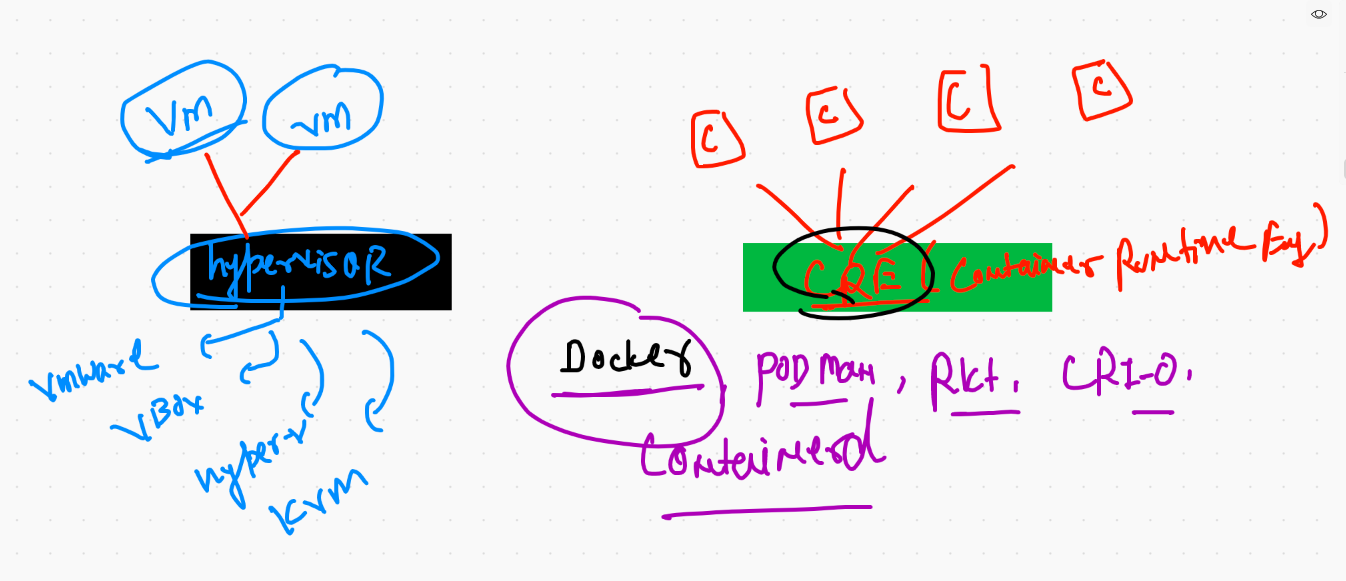 Vm vm
hypervisoR
vmware
VBox
hyper-v
Kvm
C C C C
CRE ( Container Runtime Eng)
Docker PODman, Rkt, CRI-O,
Containerd